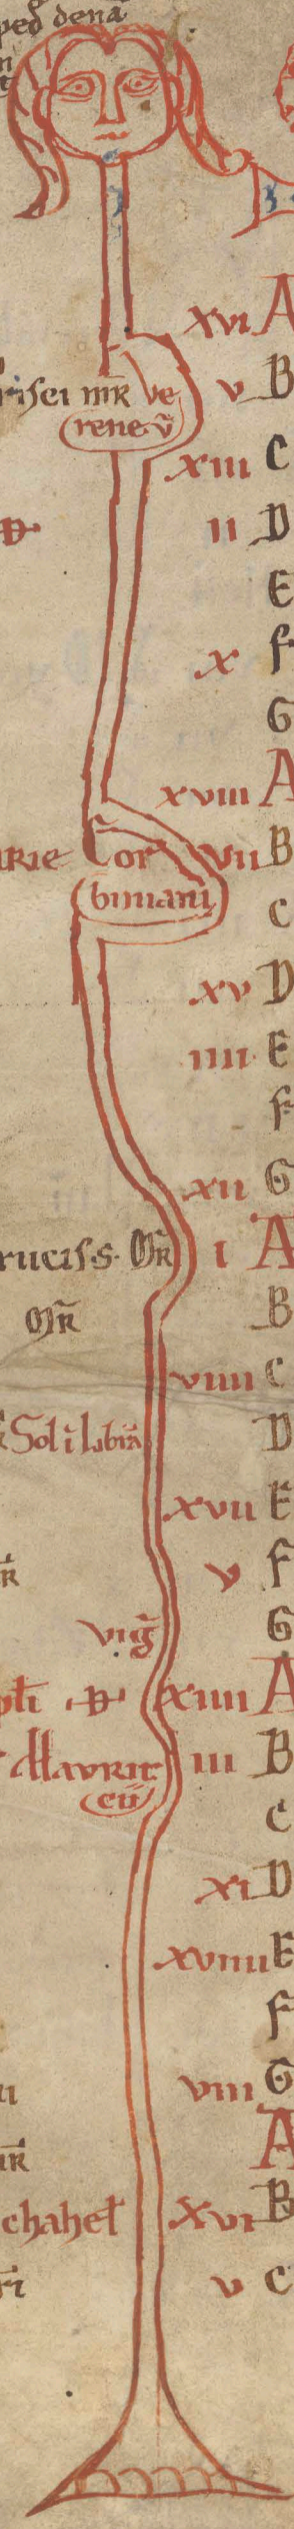 ped dena
xvi A
risci mr Ve v B
rene v
xiii C
ii D
E
x F
G
xviii A
arie Cor vii B
biniani C
xv D
iiii E
F
xii G
rucis s. Mr i A
Mr B
viiii C
Sol i libra D
xvii E
r v F
vig G
pli xiiii A
Mauric iii B
cii C
xi D
xviiii E
F
viii G
A
chahel xvi B
v C